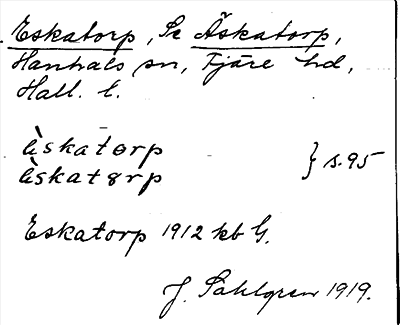 Eskatorp, Se Äskatorp,
Hanhals sn, Fjäre hd,
Hall. l.
èskatɵrp } s. 95
èskatɞrp
Eskatorp 1912 kb G.
J. Sahlgren 1919.